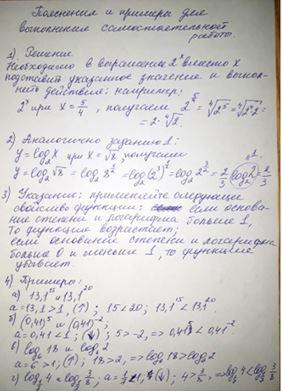 Пояснения и примеры для
выполнения самостоятельной
работы.
1) Решение
Необходимо в выражение 2ˣ вместо x
подставить указанное значение и выпол-
нить действия: например:
2ˣ при x = 5/4, получаем 2^(5/4) = ⁴√2⁵ = ⁴√2⁴·2 =
= 2·⁴√2.
2) Аналогично заданию 1:
y = log₂ x при x = √8, получаем
3) Указание: применяйте следующие
свойства функции: если основа-
ние степени и логарифма больше 1,
то функция возрастает;
если основание степени и логарифма
больше 0 и меньше 1, то функция
убывает.
4) Примеры:
а) 13,1¹⁵ и 13,1²⁰
a = 13,1 > 1, (↑); 15 < 20; 13,1¹⁵ < 13,1²⁰
б) (0,41)⁵ и (0,41)⁻²;
a = 0,41 < 1, (↓); 5 > -2, => 0,41⁵ < 0,41⁻²
в) log₆ 18 и log₆ 2
a = 6 > 1; (↑); 18 > 2, => log₆ 18 > log₆ 2